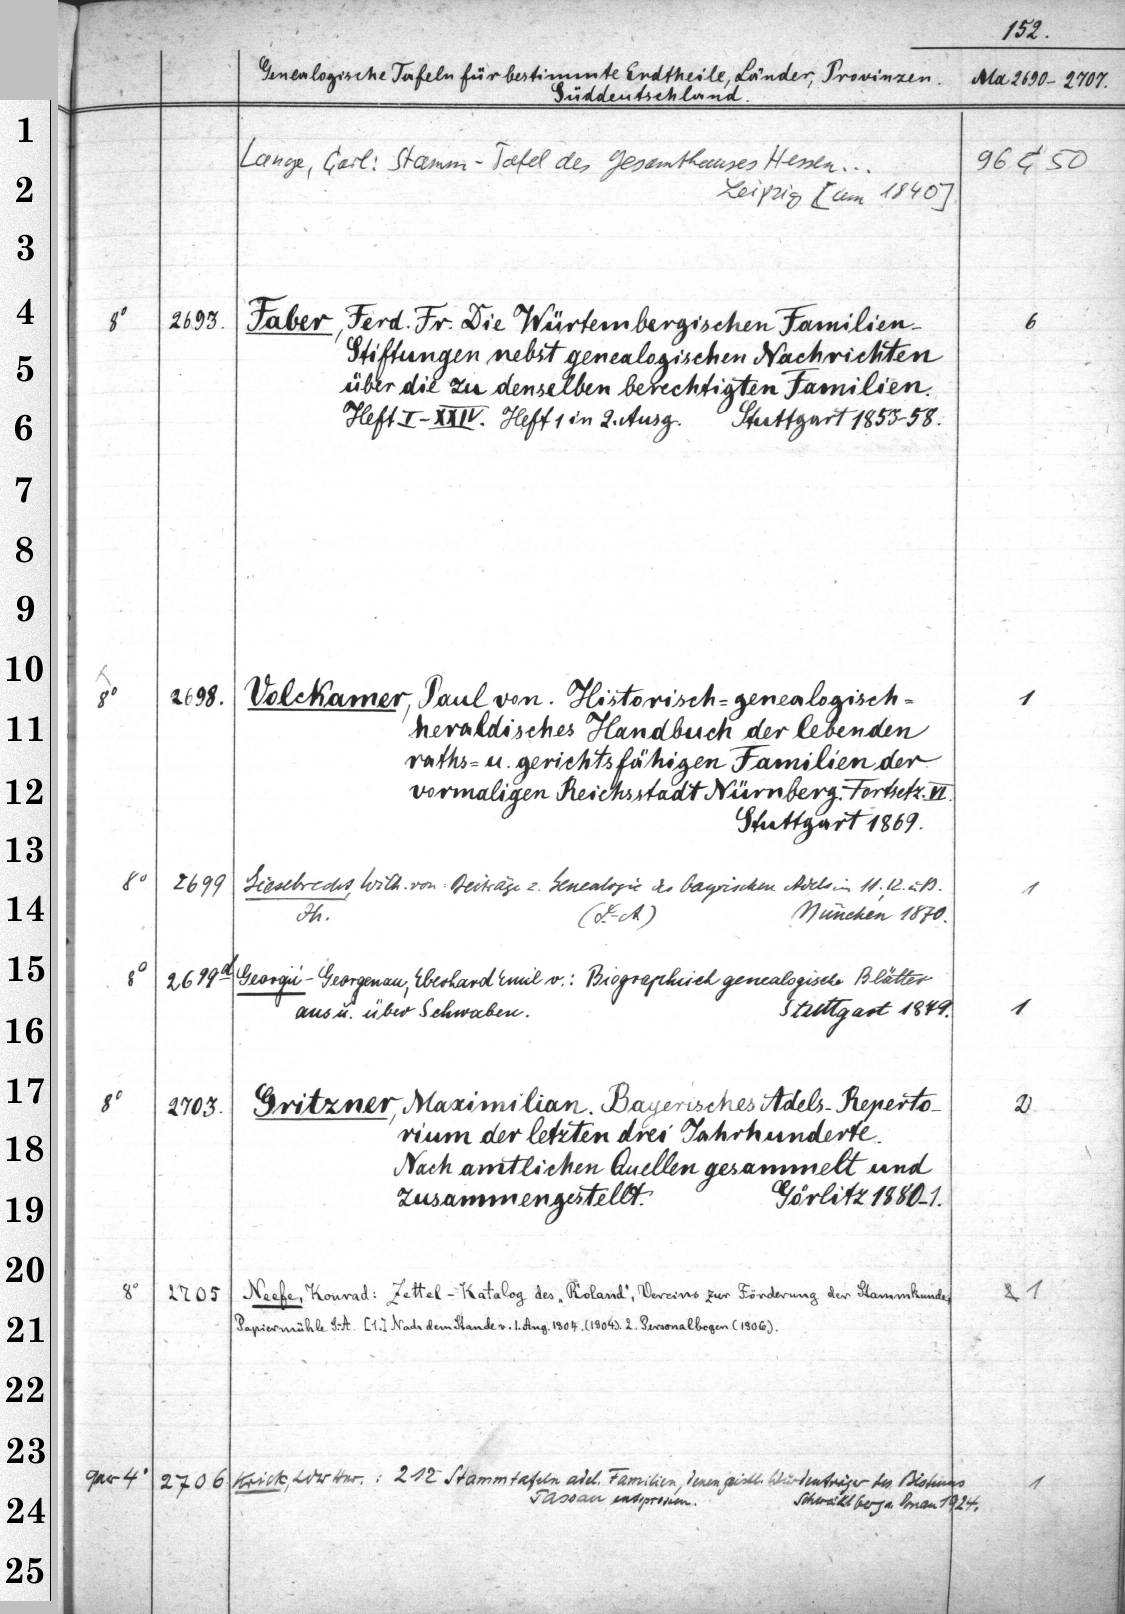 152.
Genealogische Tafeln für bestimmte Erdtheile, Länder, Provinzen. Ma 2690-2707.
Süddeutschland.
1
Lange, Carl: Stamm-Tafel des Gesamthauses Hessen... 96 C 50
2
Leipzig [um 1840]
3
4
8° 2693. Faber, Ferd. Fr. Die Würtembergischen Familien- 6
Stiftungen nebst genealogischen Nachrichten
5
über die zu denselben berechtigten Familien.
6
Heft I-XXIV. Heft 1 in 2. Ausg. Stuttgart 1853-58.
7
8
9
10
8° 2698. Volckamer, Paul von. Historisch=genealogisch= 1
11
heraldisches Handbuch der lebenden
raths= u. gerichtsfähigen Familien der
12
vormaligen Reichsstadt Nürnberg. Fortsetz. VI.
Stuttgart 1869.
13
8° 2699 Giesebrecht, Wilh. von: Beiträge z. Genealogie des bayrischen Adels im 11. 12. u. 13. 1
14
Jh. (S.-A) München 1870.
15
8° 2699d Georgii-Georgenau, Eberhard Emil v.: Biographisch genealogische Blätter
16
aus u. über Schwaben. Stuttgart 1879. 1
17
8° 2703. Gritzner, Maximilian. Bayerisches Adels-Reperto- 2
18
rium der letzten drei Jahrhunderte.
Nach amtlichen Quellen gesammelt und
19
zusammengestellt. Görlitz 1880-1.
20
8° 2705 Neefe, Konrad: Zettel-Katalog des "Roland", Vereins zur Förderung der Stammkunde, 2 1
21
Papiermühle S-A. [1.] Nach dem Stande v. 1. Aug. 1904. (1904). 2. Personalbogen (1906).
22
23
quer 4° 2706 Krick, Ldw Hnr. : 212 Stammtafeln adel. Familien, denen geistl. Würdenträger des Bistums 1
24
Passau entsprossen. 1924.
25